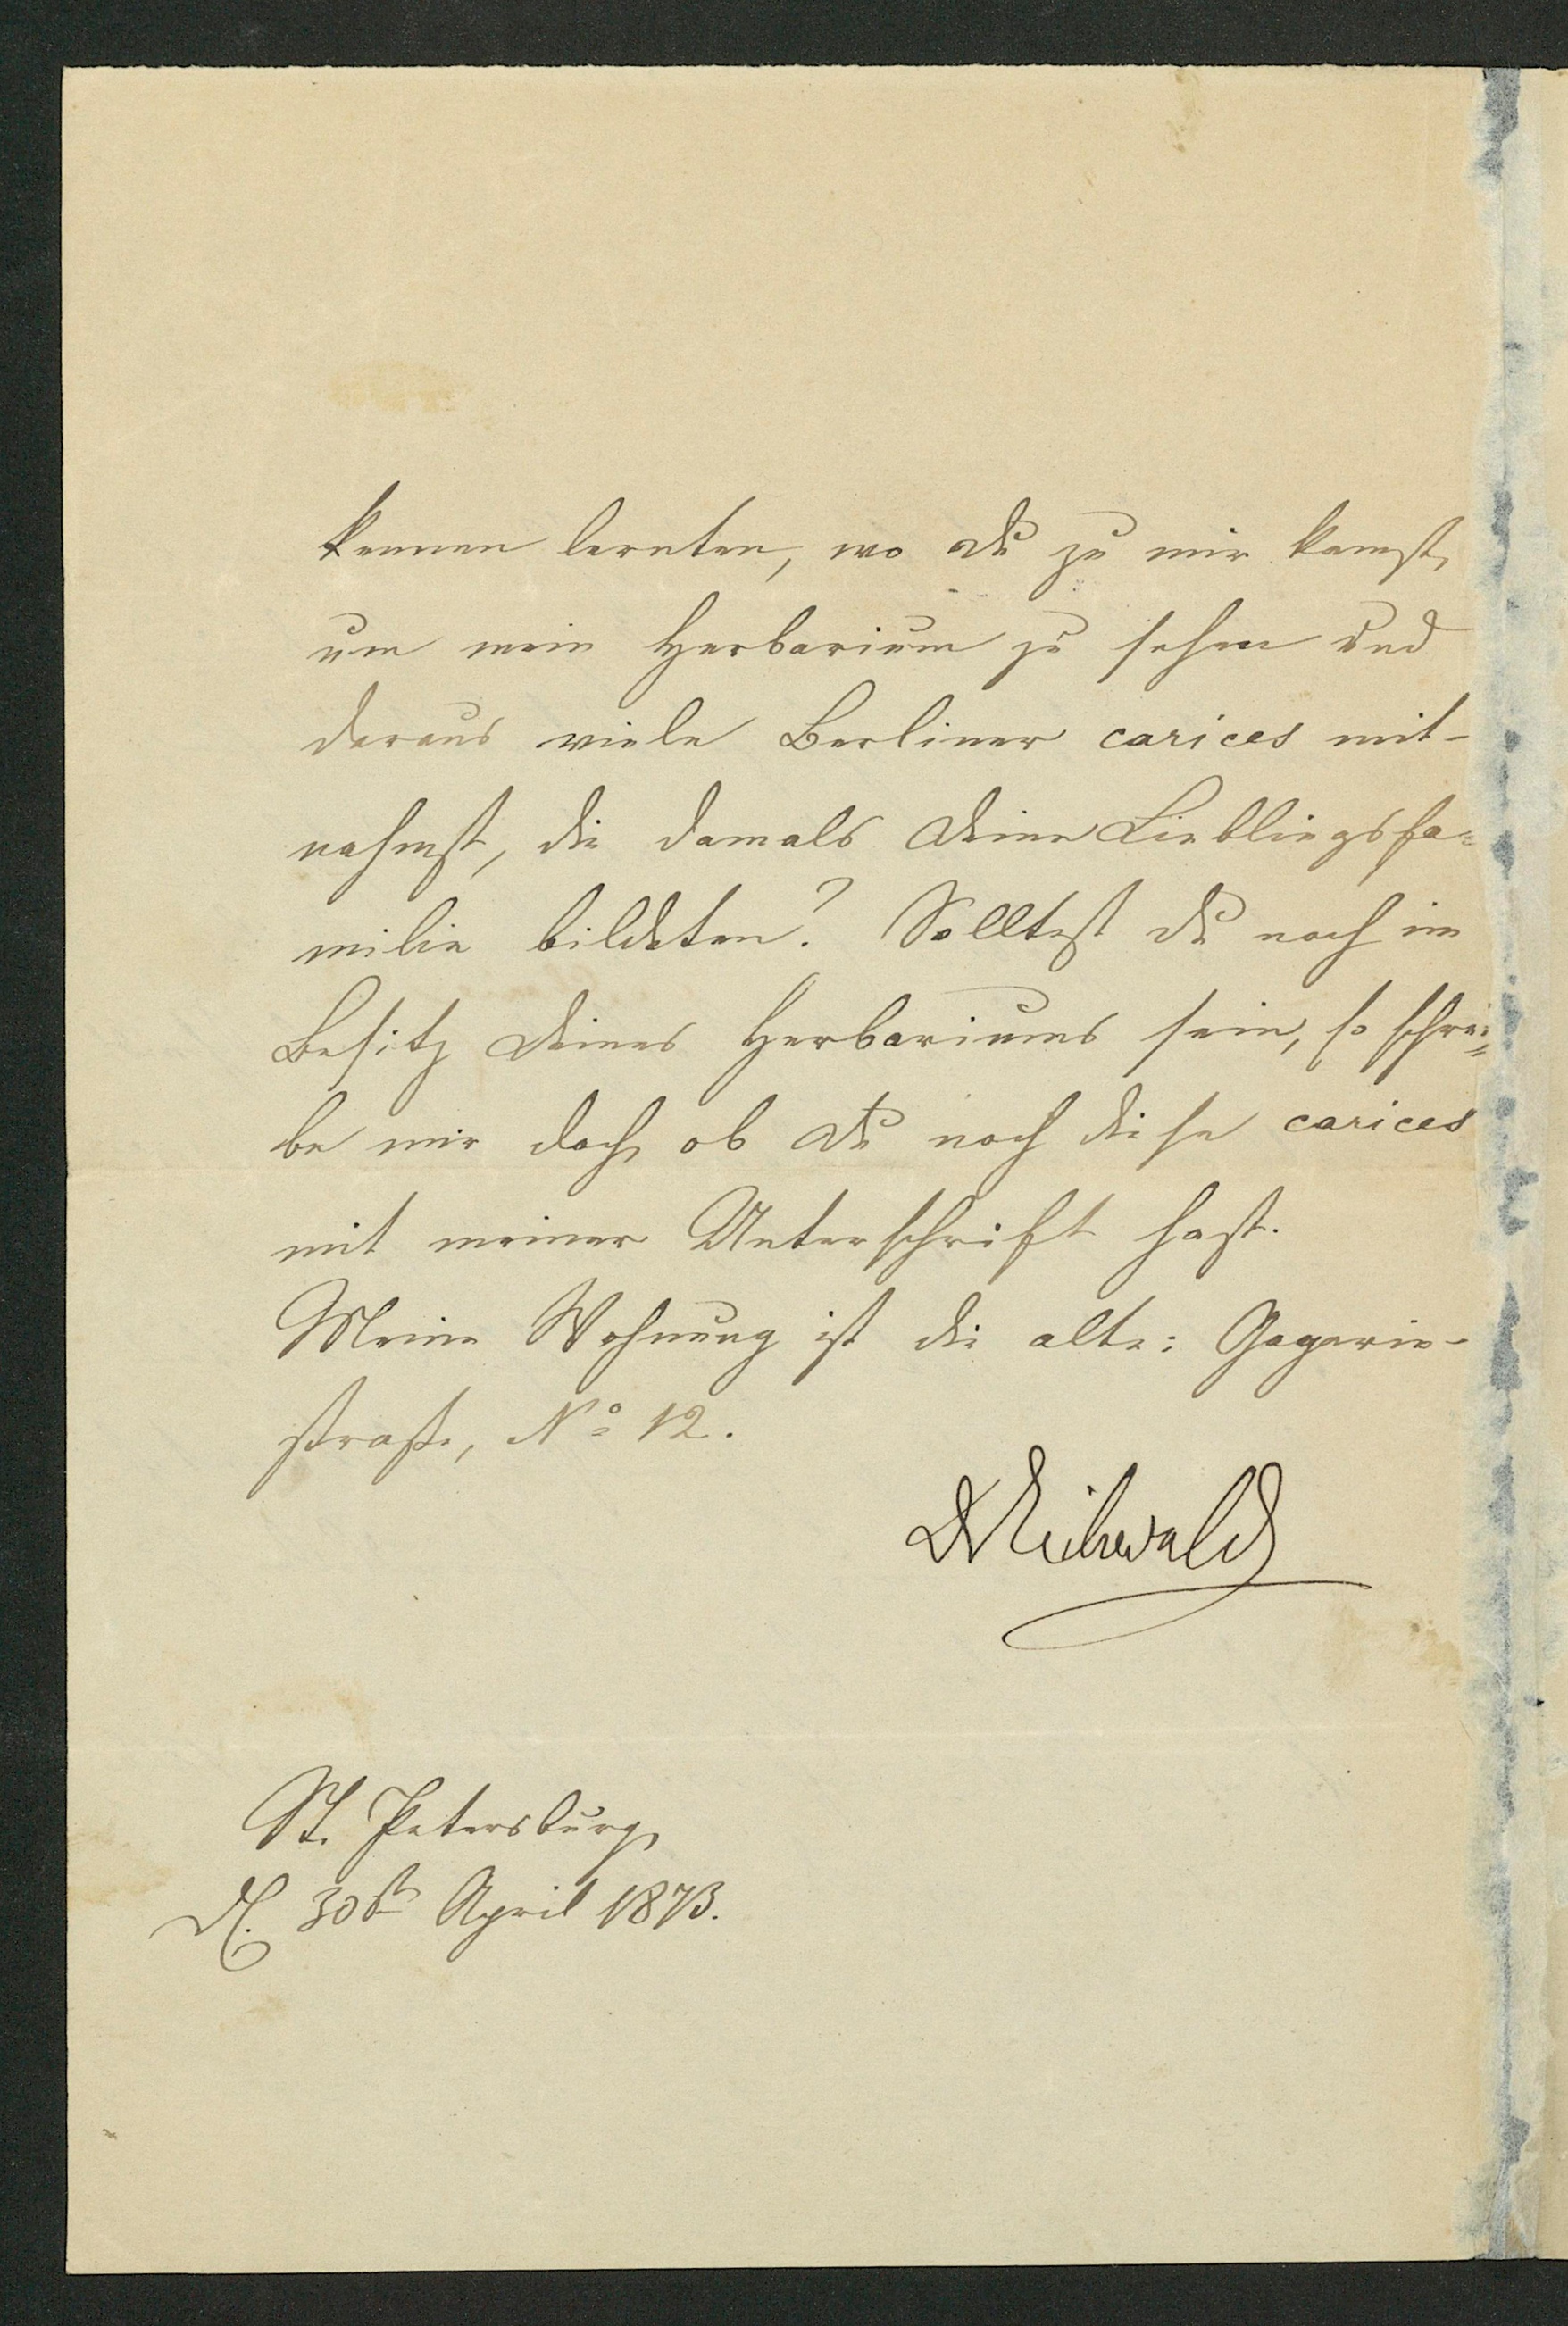 kennen lernten, wo Du zu mir kamst,
um mein Herbarium zu sehen und
daraus viele Berliner carices mit-
nahmst, die damals Deine Lieblingsfa-
milie bildeten? Solltest Du noch im
Besitz Deines Herbariums sein, so schrei=
be mir doch, ob Du noch diese carices
mit meiner Unterschrift hast.
Meine Wohnung ist die alte: Gagarin-
straße, No 12.
Dr Eichwald
St. Petersburg,
d. 30st April 1873.